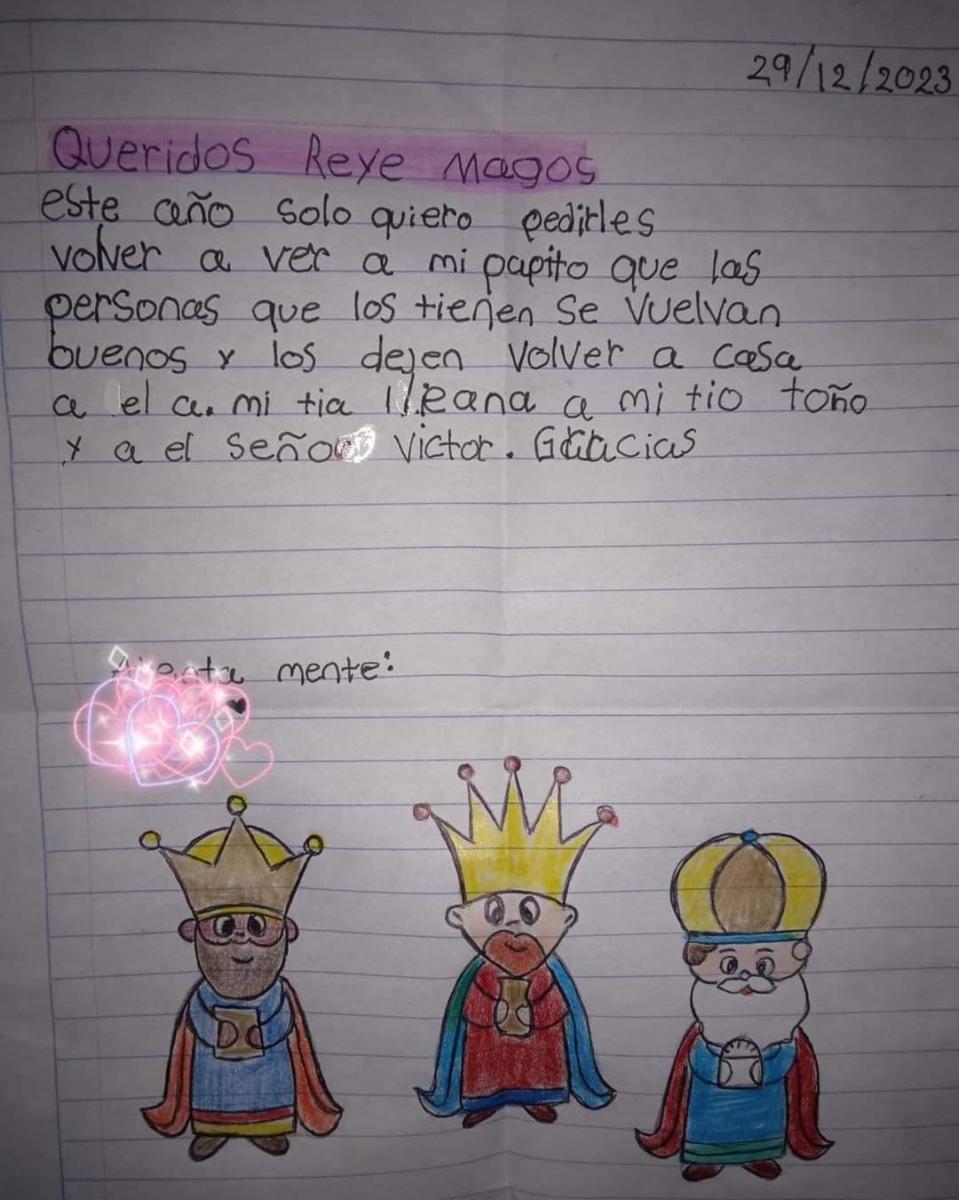 29/12/2023
Queridos Reye Magos
este año solo quiero pedirles
volver a ver a mi papito que las
personas que los tienen se vuelvan
buenos y los dejen volver a casa
a el a. mi tia Ileana a mi tio toño
y a el señor Victor. Gracias
Atenta mente: